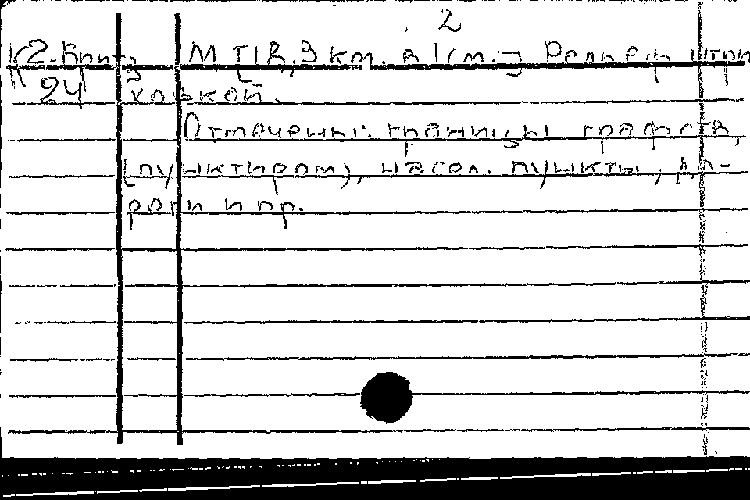 2
К2-Брит. М [18,3 км. в 1 см.] Рельеф штри
24 ховкой.
Отмечены: границы графств,
(пунктиром), насел. пункты, до-
роги и пр.